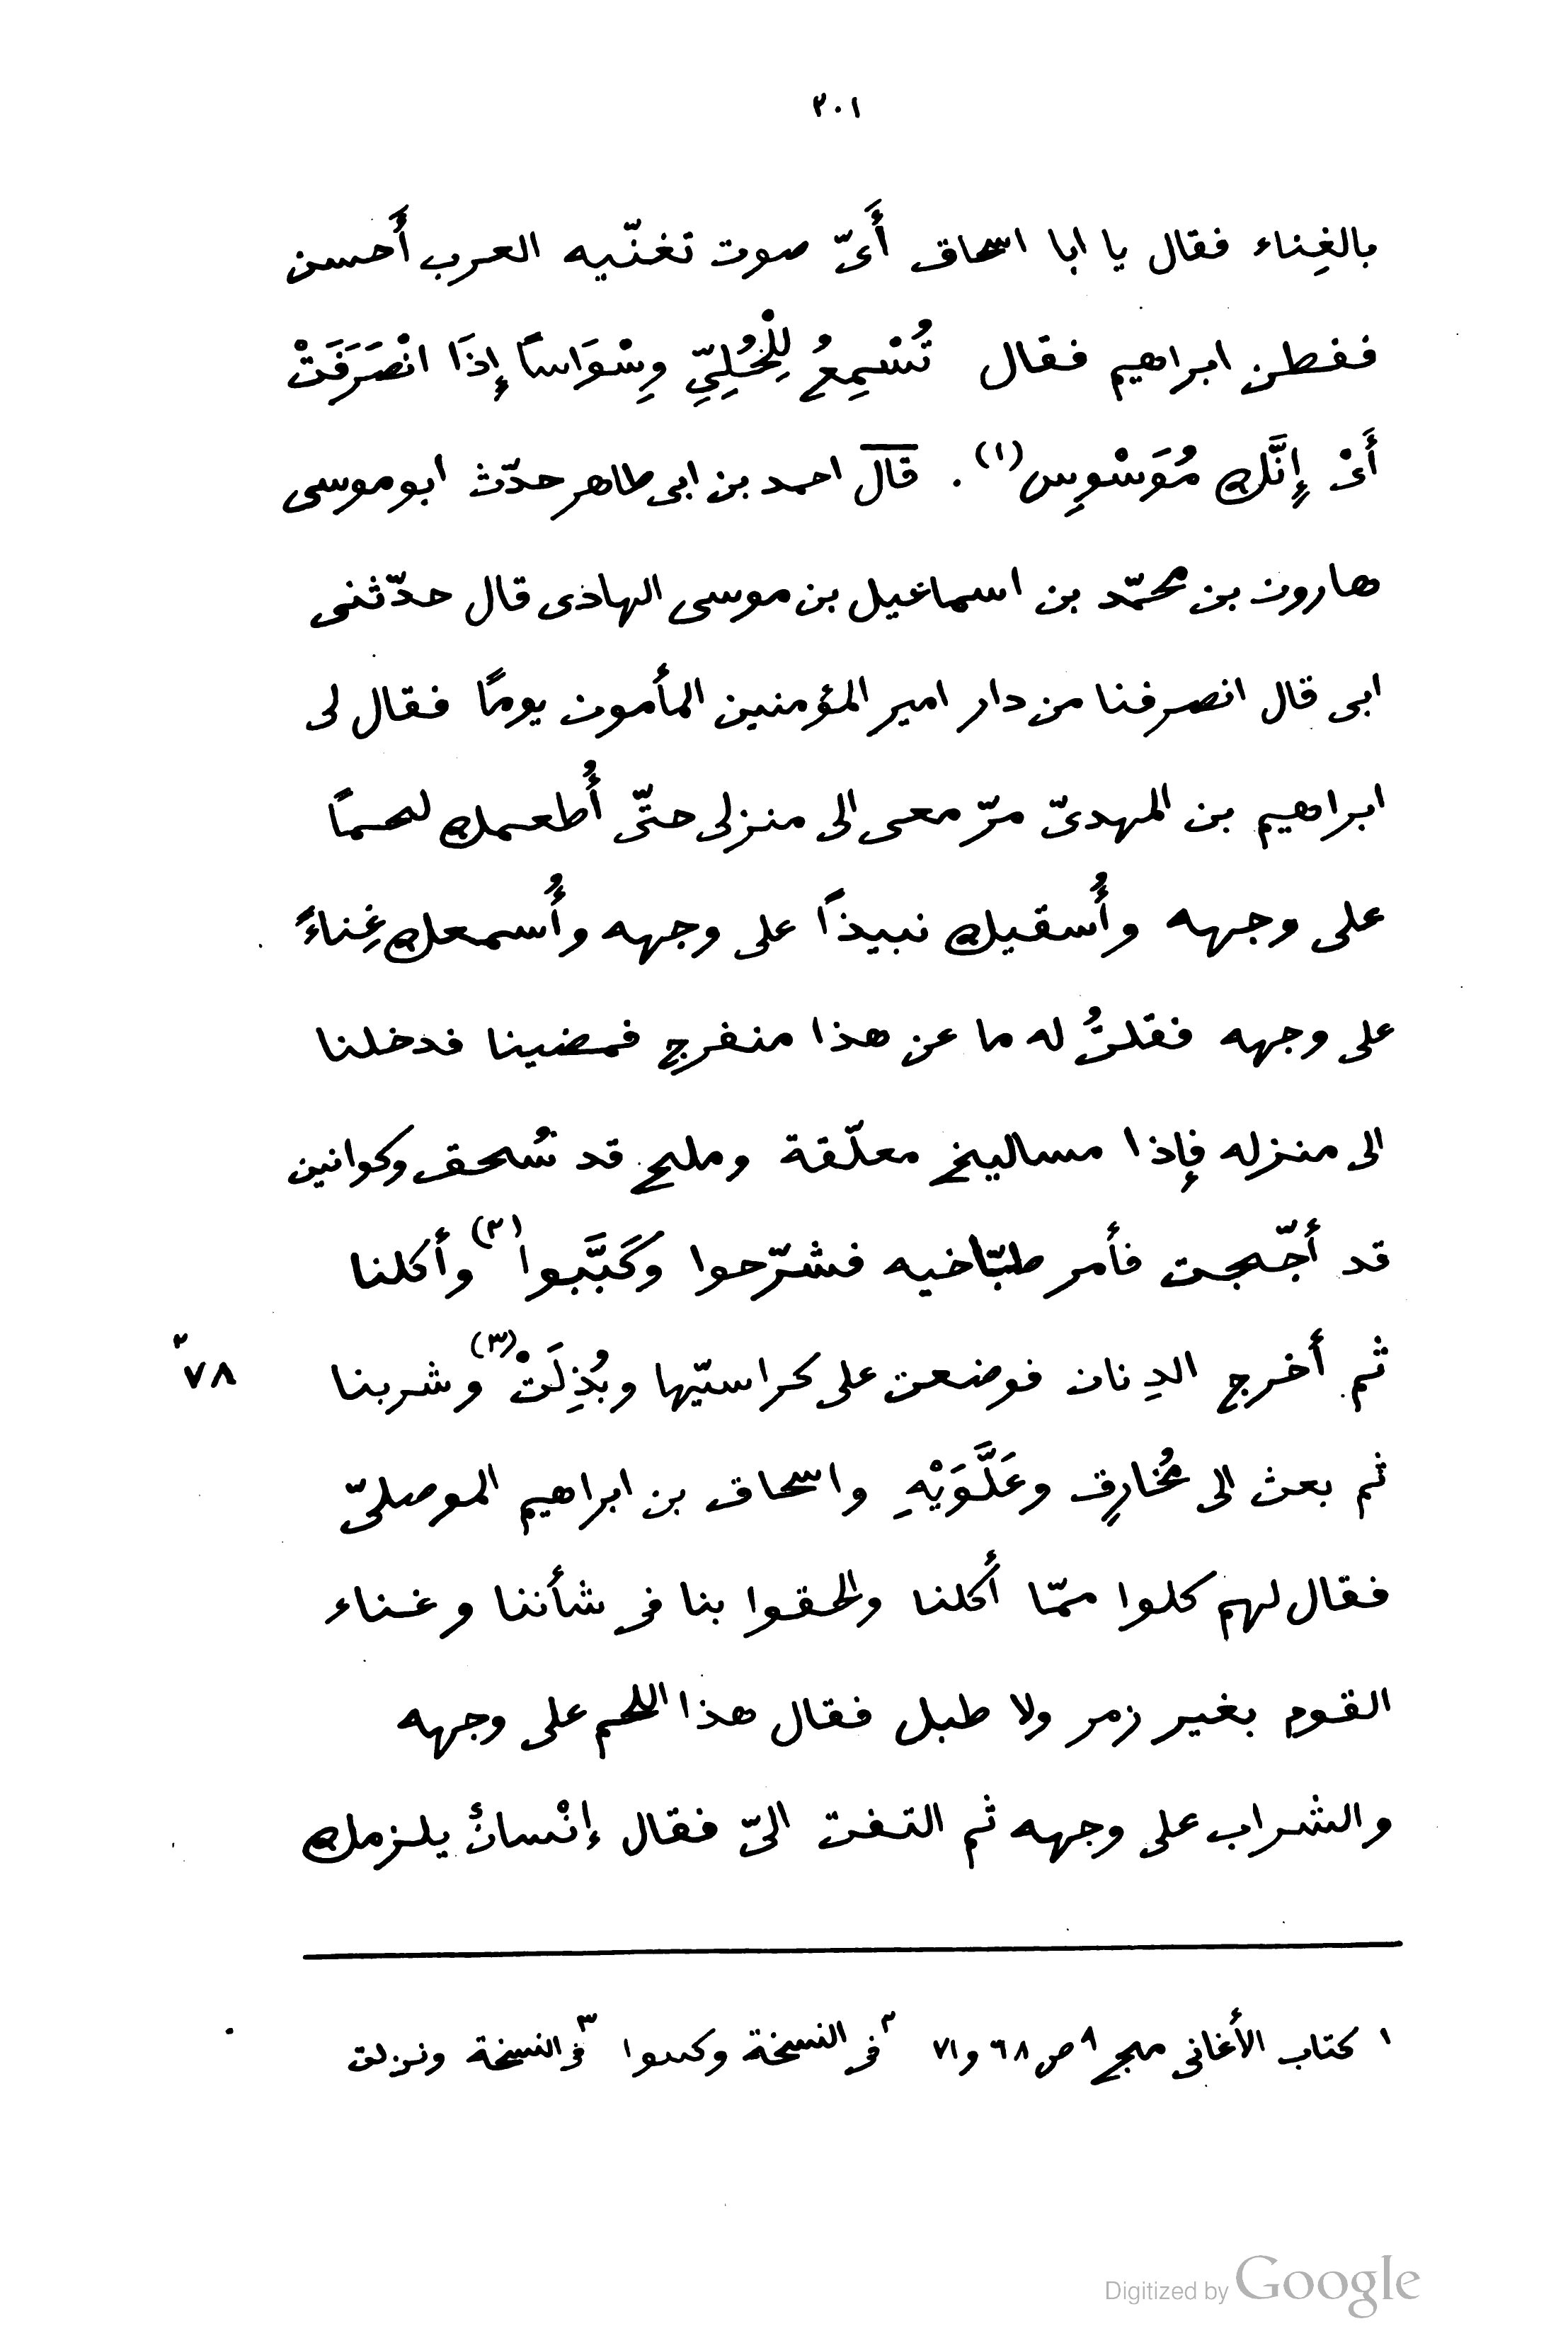 ٢٠١
بالغِناء فقال يا ابا اسحاق أَىّ صوت تغنّيه العرب أَحسن
ففطن ابراهيم فقال تُسْمِعُ لِلْحُلِيِّ وِسْوَاسًا إِذَا انْصَرَفَتْ
أَىْ إِنَّك مُوَسْوِس (١) . قال احمد بن ابى طاهر حدّث ابو موسى
هارون بن محمّد بن اسماعيل بن موسى الهادى قال حدّثنى
ابى قال انصرفنا من دار امير المؤمنين المأمون يومًا فقال لى
ابراهيم بن المهدىّ مرّ معى الى منزلى حتّى أُطعمك لحمًا
على وجهه وأُسقيك نبيذًا على وجهه وأُسمعك غِناءً
على وجهه فقلتُ له ما عن هذا منفرج فمضينا فدخلنا
الى منزله فإذا مساليخ معلّقة وملح قد سُحق وكوانين
قد أجّجت فأمر طبّاخيه فشرّحوا وكَبَّبوا (٢) وأكلنا
ثم أخرج الدِنان فوضعن على كراسيّها وبُذِلَتْ (٣) وشربنا
٧٨ ٢
ثم بعث الى مُخارِقٍ وعَلَّوَيْهِ واسحاق بن ابراهيم الموصلىّ
فقال لهم كلوا ممّا أَكلنا والحقوا بنا فى شأننا وغناء
القوم بغير زمر ولا طبل فقال هذا اللحم على وجهه
والشراب على وجهه ثم التفت الىّ فقال إنْسانٌ يلزمك
١ كتاب الأغانى مج ٩ ص ٦٨ و٧١ ٢ فى النسخة وكىىوا ٣ فى النسخة ونزلت
Digitized by Google